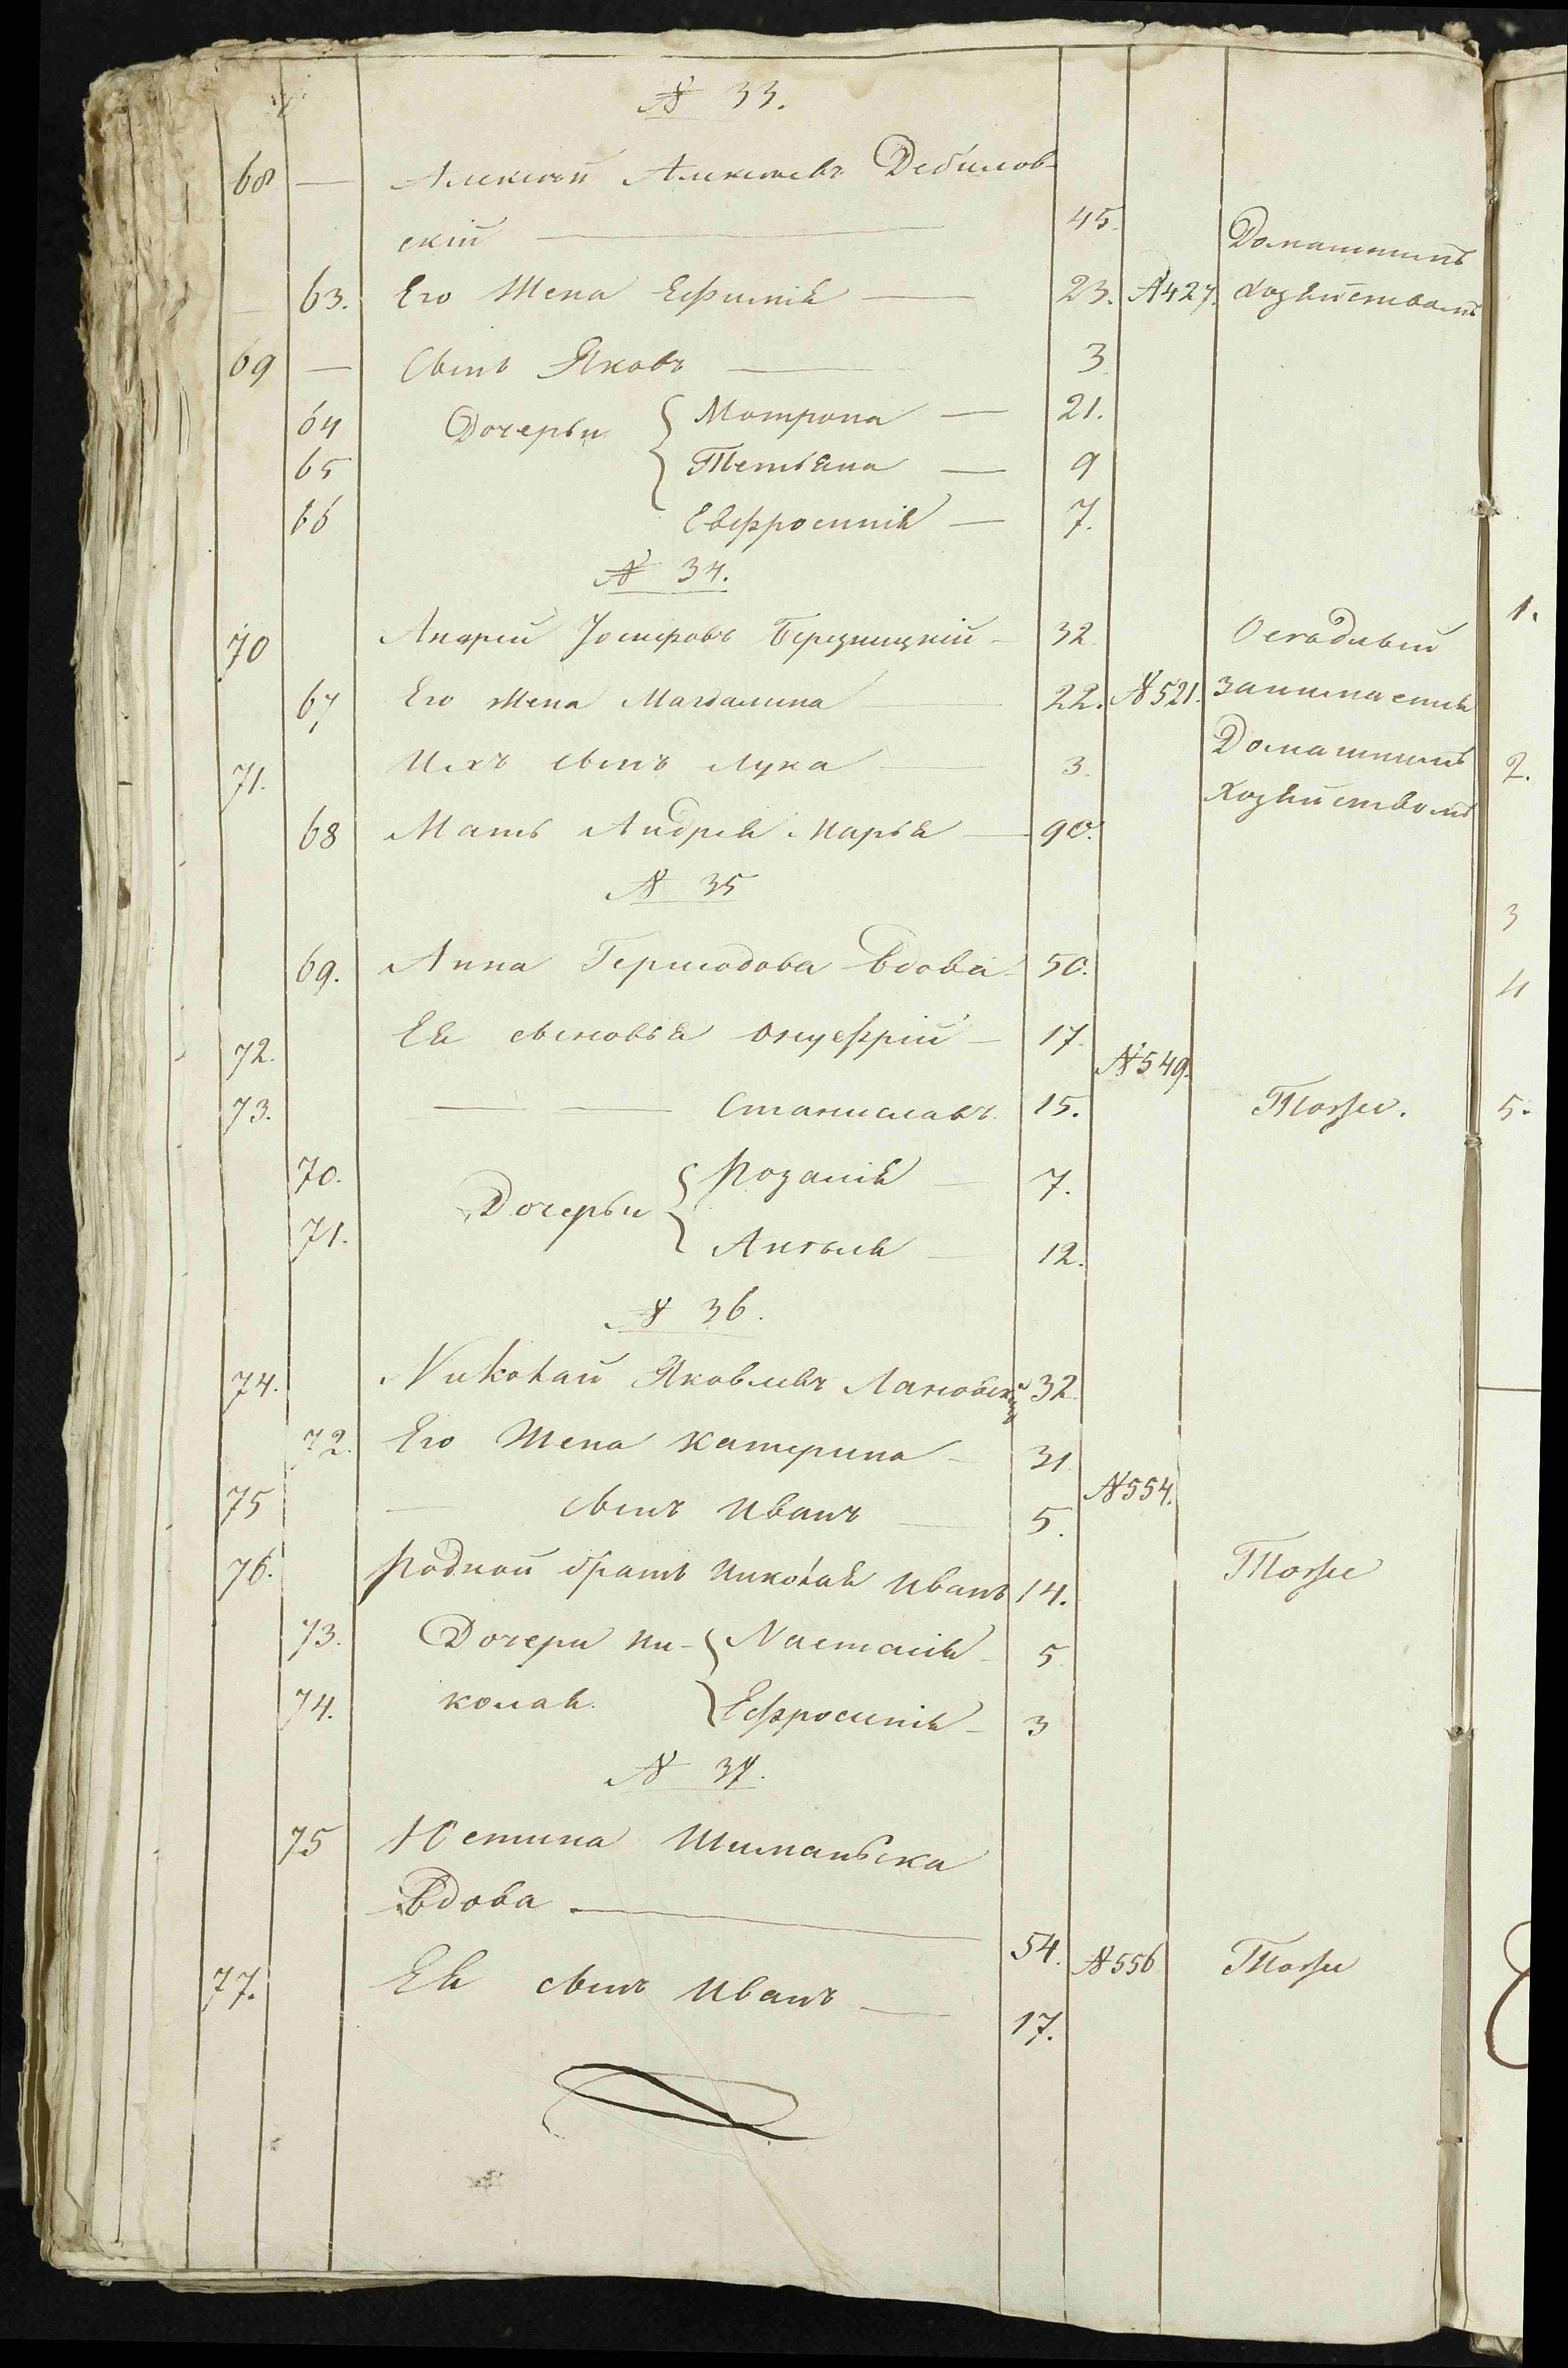 № 33.
68 — Алексѣй Алексѣевъ Дебилов-
скій — 45. Домашнимъ
63. Его Жена Ефимія — 23. №427. хозяйствомъ
69 — Сынъ Яковъ — 3
64 Дочерьи Мотрона — 21.
65 Тетьяна — 9
66 Евфросинія — 7.
№ 34.
70 Андрей Іосифовъ Березницкій — 32 Осѣдлый
67 Его жена Магдалина 22. №521. занимается
71. Ихъ сынъ Лука 3. Домашнимъ
68 Мать Андрея Марья — 90. Хозяйствомъ
№ 35
69. Анна вдова 50.
72. Ея сыновья Онуфрій — 17. №549.
73. — — Станиславъ 15. Тоже.
70. Дочерьи Розалія — 7.
71. Ангеля — 12.
№ 36.
74. Николай Яковлевъ Лановскій 32
72. Его Жена Катерина — 31
75 — сынъ Иванъ — 5. №554.
76. Родной братъ Николая Иванъ 14. Тоже
73. Дочери Ни- Настасія — 5
74. колая. Ефросинія — 3
№ 37.
75 Юстина Шиманьска
Вдова — 54. №556 Тоже
77. Ея сынъ Иванъ — 17.
1.
2.
3
4
5.